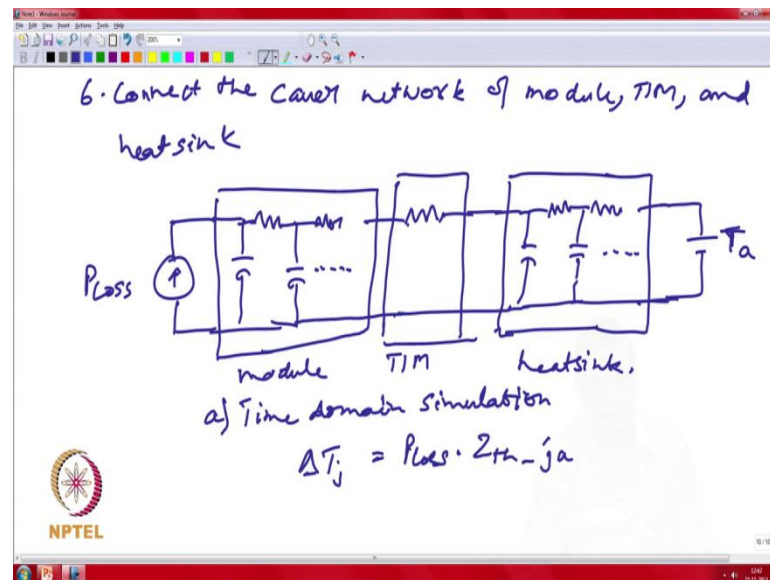 Note1 - Windows Journal
File Edit View Insert Actions Tools Help
200%
B I
6. Connect the Cauer network of module, TIM, and
heatsink
PLoss
Ta
module
TIM
heatsink.
a) Time domain simulation
ΔTj = PLoss · Zth-ja
NPTEL
10/10
12:42